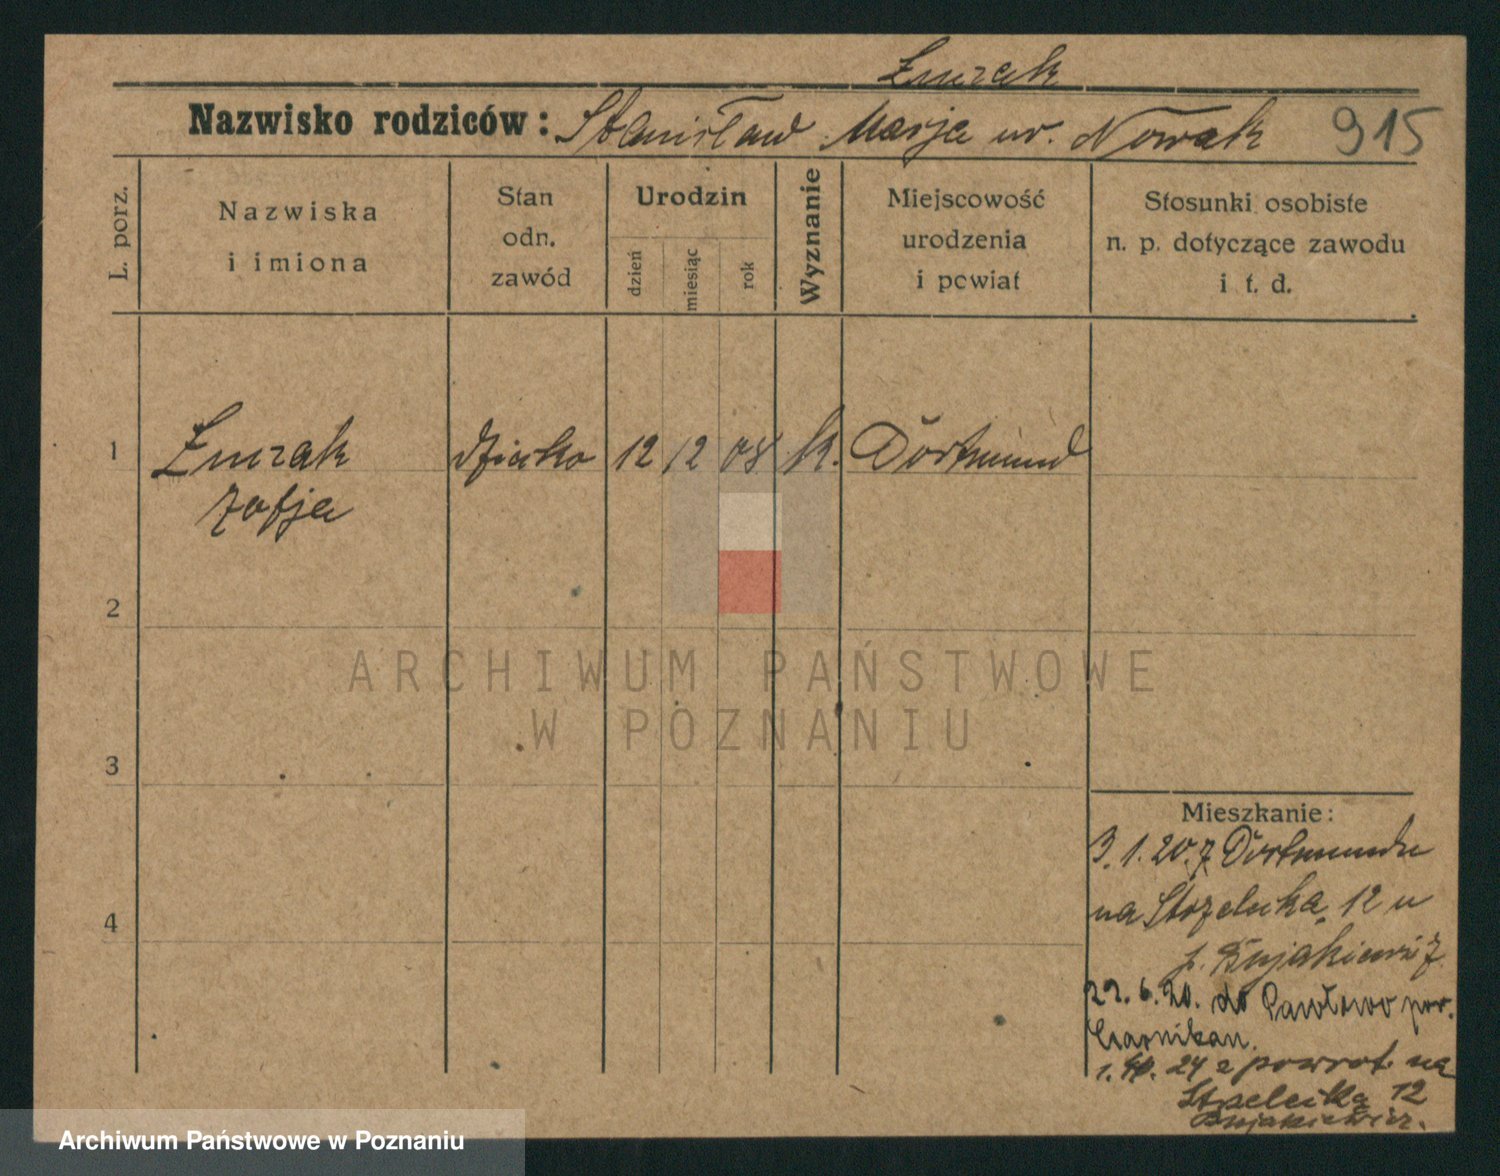 Żurzak
Nazwisko rodziców: Stanisław Marja ur. Nowak 915
L. porz.
Nazwiska
i imiona
Stan
odn.
zawód
Urodzin
dzień
miesiąc
rok
Wyznanie
Miejscowość
urodzenia
i powiat
Stosunki osobiste
n. p. dotyczące zawodu
i t. d.
1
dziecko 12 12 08 k. Dortmund
Zofja
2
ARCHIWUM PAŃSTWOWE
W POZNANIU
3
4
Mieszkanie:
3.1.20. z Dortmundu
na Strzelecka 12 u
p. Bujakiewicz
22.6.20. do Pawłowo pow.
Czarnikau.
24 z powrot. na
Strzelecka 12
Bujakiewicz.
Archiwum Państwowe w Poznaniu